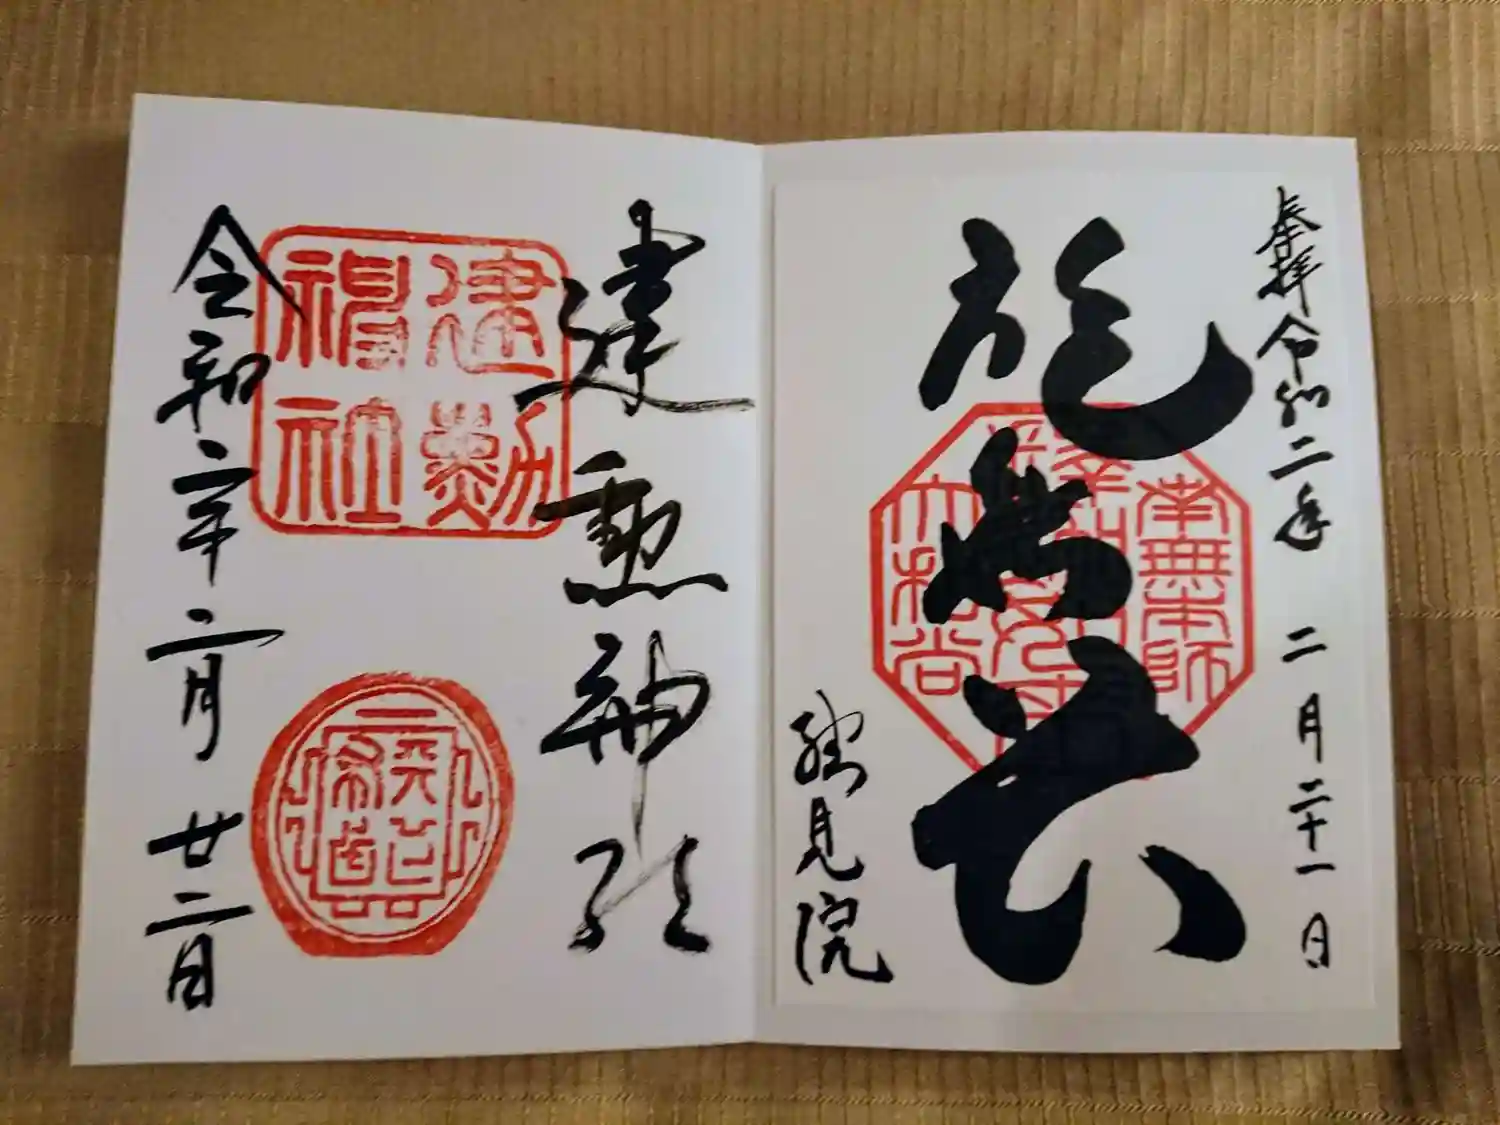 奉拝 令和二年 二月二十一日
施無畏
南無本師
大和尚
総見院
建勲神社
建勲
神社
令和二年二月廿二日